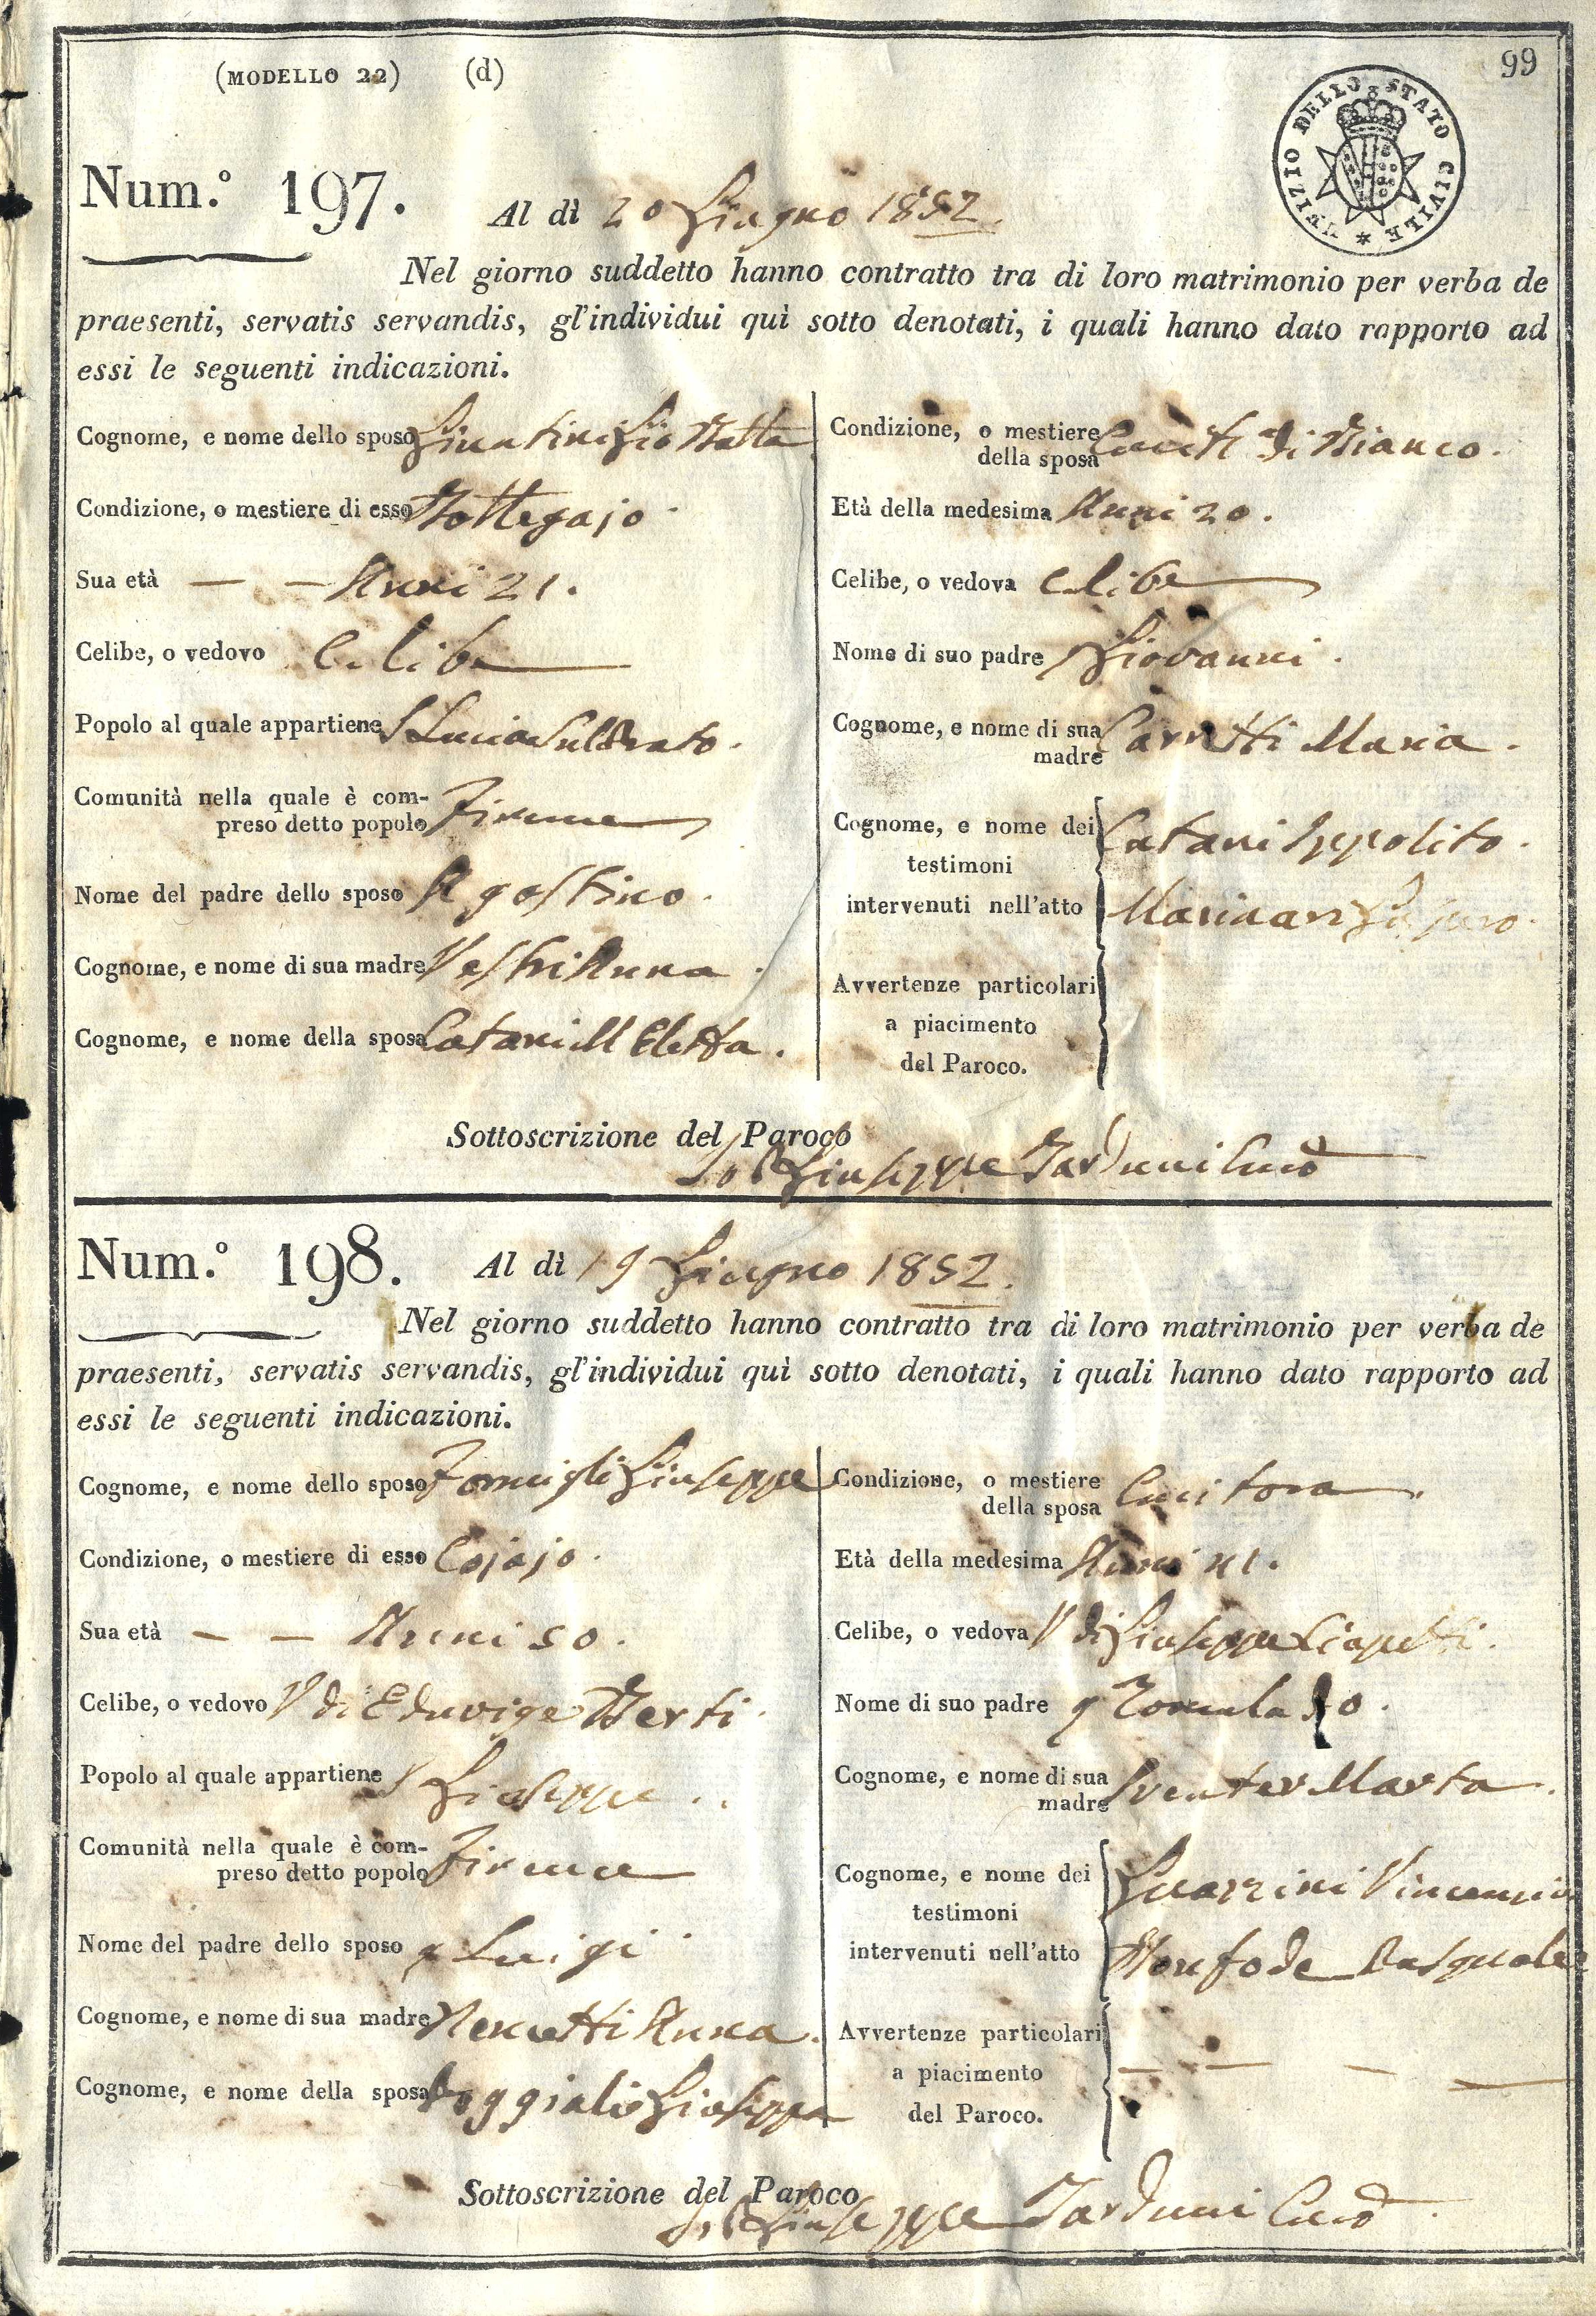 (MODELLO 22) (d)
99
UFIZIO DELLO STATO CIVILE
Num.º 197. Al dì 20 Giugno 1852.
Nel giorno suddetto hanno contratto tra di loro matrimonio per verba de
praesenti, servatis servandis, gl'individui quì sotto denotati, i quali hanno dato rapporto ad
essi le seguenti indicazioni.
Cognome, e nome dello sposo Giuntini Gio Batta
Condizione, o mestiere di esso Bottegajo.
Sua età — — Anni 21.
Celibe, o vedovo Celibe
Popolo al quale appartiene S Lucia Sul Prato.
Comunità nella quale è com-
preso detto popolo Firenze
Nome del padre dello sposo Agostino.
Cognome, e nome di sua madre Vestri Anna.
Cognome, e nome della sposa Catani M Eletta.
Condizione, o mestiere
della sposa di Bianco.
Età della medesima Anni 20.
Celibe, o vedova Celibe
Nome di suo padre Giovanni.
Cognome, e nome di sua
madre Carretti Maria.
Cognome, e nome dei Catani Ippolito.
testimoni
intervenuti nell'atto
Avvertenze particolari
a piacimento
del Paroco.
Sottoscrizione del Paroco
Giuseppe Tarduni Curo
Num.º 198. Al dì 19 Giugno 1852.
Nel giorno suddetto hanno contratto tra di loro matrimonio per verba de
praesenti, servatis servandis, gl'individui quì sotto denotati, i quali hanno dato rapporto ad
essi le seguenti indicazioni.
Cognome, e nome dello sposo Fomigli Giuseppe
Condizione, o mestiere di esso Cojajo.
Sua età — — Anni 50.
Celibe, o vedovo V di Eduvige Berti.
Popolo al quale appartiene S Giuseppe..
Comunità nella quale è com-
preso detto popolo Firenze
Nome del padre dello sposo q Luigi.
Cognome, e nome di sua madre Nencetti Anna.
Cognome, e nome della sposa Poggiali Giuseppa
Condizione, o mestiere
della sposa Cucitora
Età della medesima Anni 41.
Celibe, o vedova V di Giuseppe Ciapetti.
Nome di suo padre q Romualdo.
Cognome, e nome di sua
madre Marta.
Cognome, e nome dei Guarrini Vincenzio
testimoni
intervenuti nell'atto Monfode Pasquale
Avvertenze particolari
a piacimento — — — —
del Paroco.
Sottoscrizione del Paroco
Giuseppe Tarduni Curo